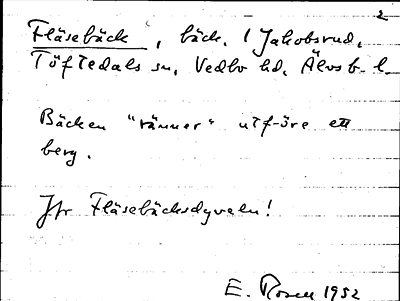 2
Fläsebäck, bäck. / Jakobsrud,
Töftedals sn, Vedbo hd, Älvsb. l.
Bäcken "ränner" utför ett
berg.
Jfr Fläsebäcksdyveln!
E. Rosell 1952